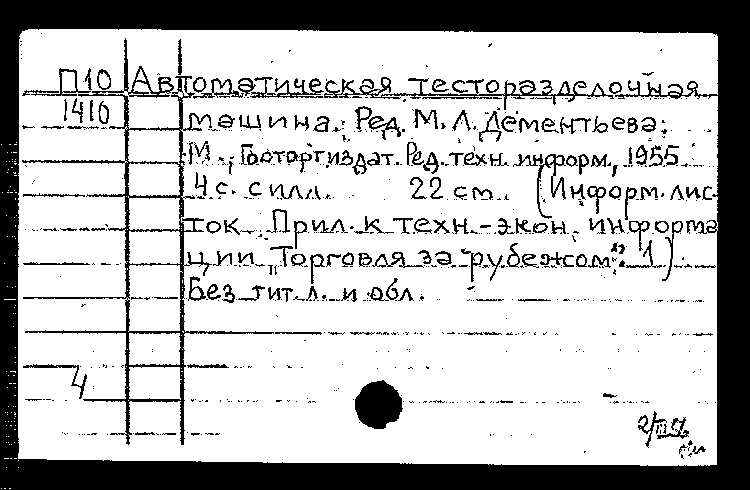 П10 Автоматическая тесторазделочная
1410 машина. Ред. М. Л. Дементьева.
М., Госторгиздат. Ред. техн. информ., 1955
4 с. с илл. 22 см. (Информ. лис-
ток. Прил. к техн.-экон. информа
ции „Торговля за рубежом“: 1)
Без тит. л. и обл.
4